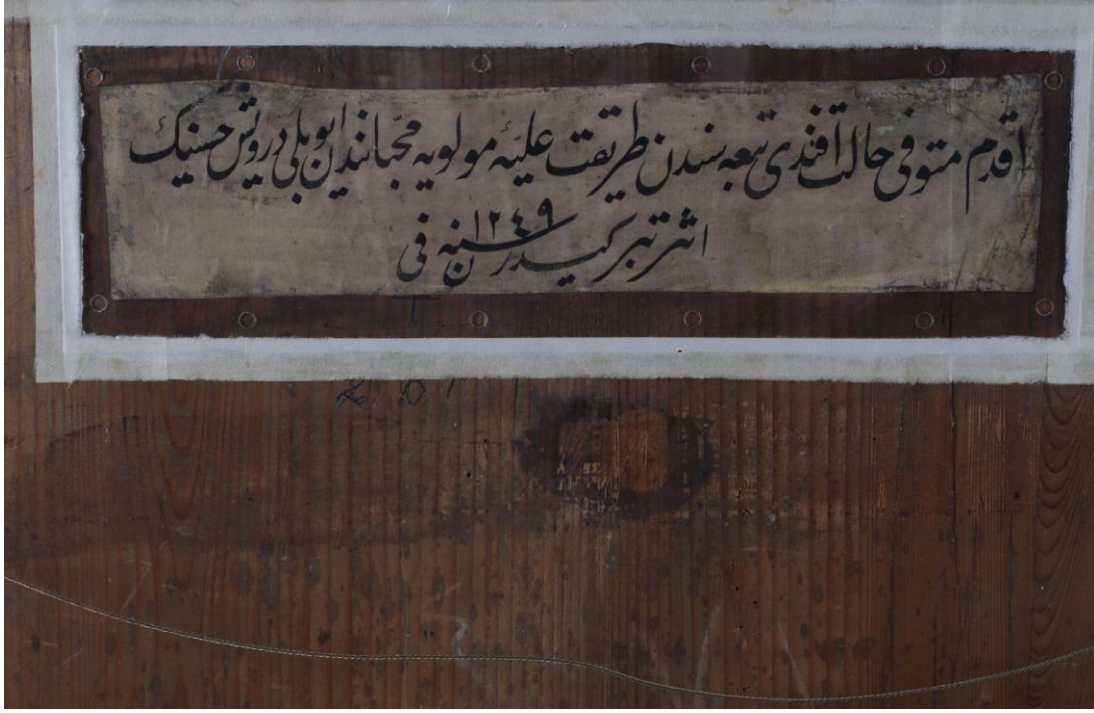 اقدم متوفى حالت افندى تبعه سندن طريقت عليۀ مولويه محبانندن ايوبلى درويش حسنيك
اثر تبركيدر سنه ١٢٤٩ فى